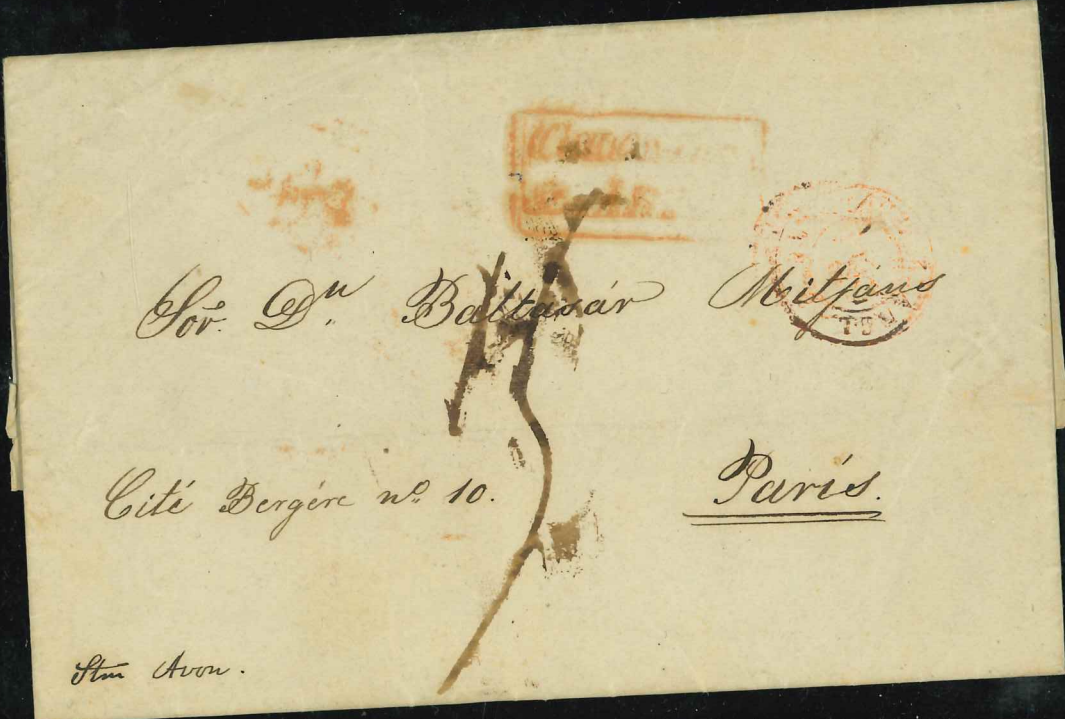 Sor. Dn Baltasár Mitjáns
Cité Bergére no 10. París.
Stm Avon.